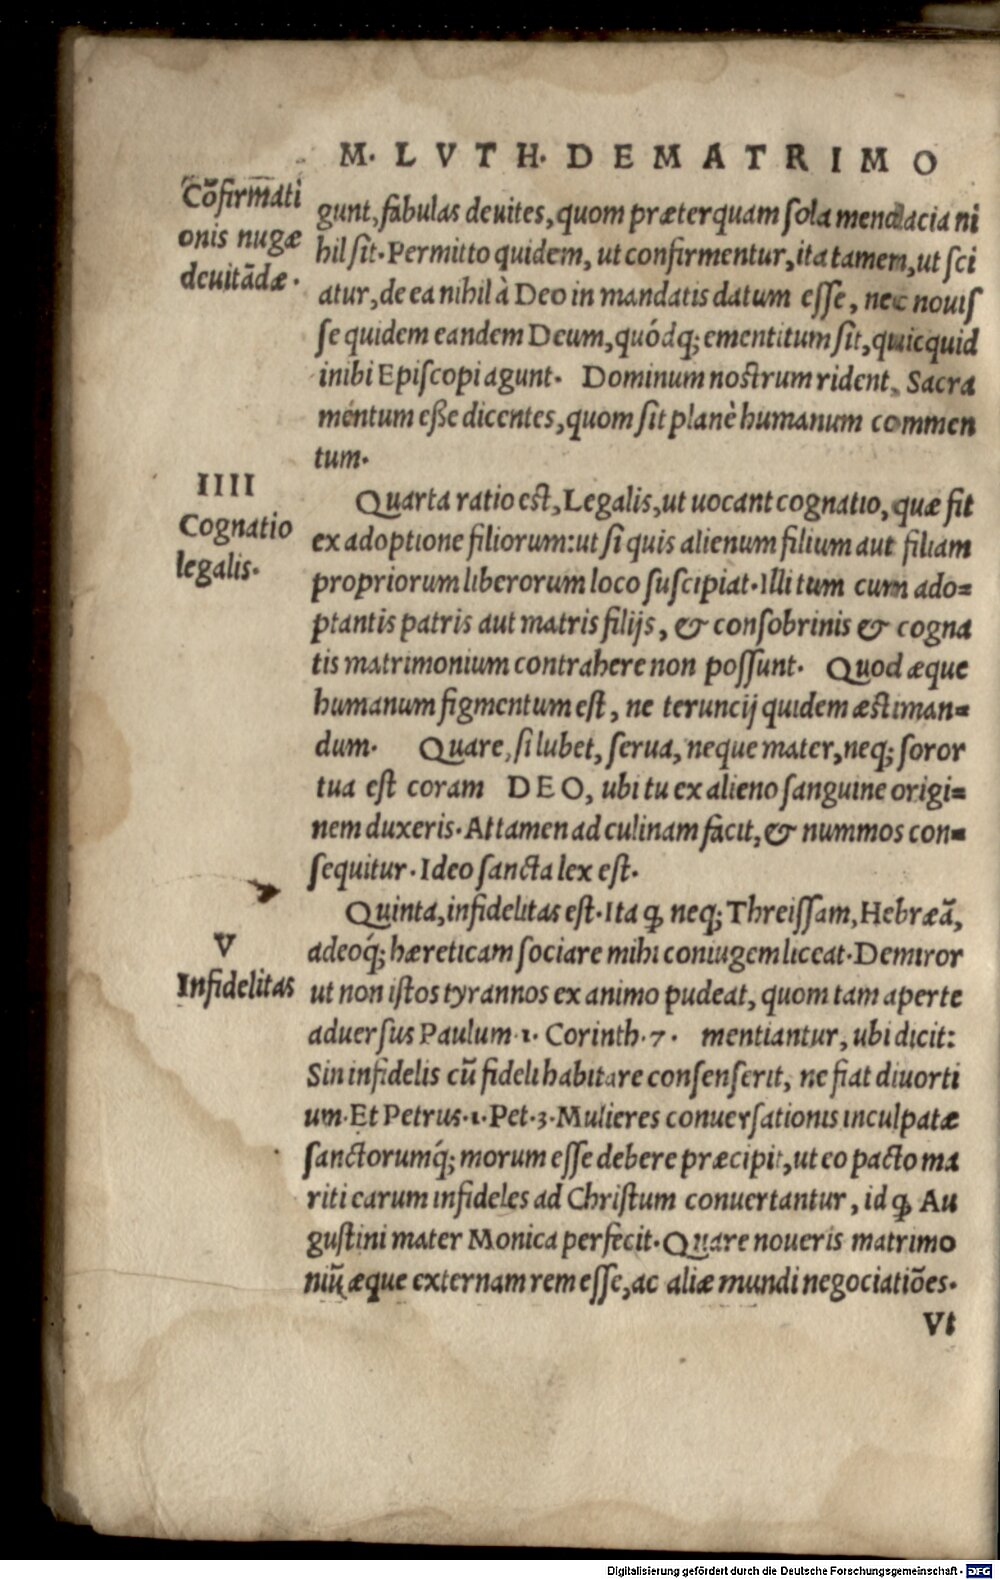 M. LVTH. DE MATRIMO
Cõfirm̃ati
onis nugæ
deuitãdæ.
gunt, fabulas deuites, quom præterquam sola mendacia ni
hil sit. Permitto quidem, ut confirmentur, ita tamen, ut sci
atur, de ea nihil à Deo in mandatis datum esse, nec nouis
se quidem eandem Deum, quódq; ementitum sit, quicquid
inibi Episcopi agunt. Dominum nostrum rident, Sacra
mentum eße dicentes, quom sit planè humanum commen
tum.
IIII
Cognatio
legalis.
Quarta ratio est, Legalis, ut uocant cognatio, quæ fit
ex adoptione filiorum: ut si quis alienum filium aut filiam
propriorum liberorum loco suscipiat. Illi tum cum ado=
ptantis patris aut matris filijs, & consobrinis & cogna
tis matrimonium contrahere non possunt. Quod æque
humanum figmentum est, ne teruncij quidem æstiman=
dum. Quare, si lubet, serua, neque mater, neq; soror
tua est coram DEO, ubi tu ex alieno sanguine origi=
nem duxeris. Attamen ad culinam facit, & nummos con=
sequitur. Ideo sancta lex est.
V
Infidelitas
Quinta, infidelitas est. Ita ꝙ neq; Threissam, Hebræã,
adeoq́; hæreticam sociare mihi coniugem liceat. Demiror
ut non istos tyrannos ex animo pudeat, quom tam aperte
aduersus Paulum .1. Corinth. 7. mentiantur, ubi dicit:
Sin infidelis cũ fideli habitare consenserit, ne fiat diuorti
um. Et Petrus .1. Pet. 3. Mulieres conuersationis inculpatæ
sanctorumq́; morum esse debere præcipit, ut eo pacto ma
riti earum infideles ad Christum conuertantur, id ꝙ Au
gustini mater Monica perfecit. Quare noueris matrimo
niũ æque externam rem esse, ac aliæ mundi negociatiões.
Vt
Digitalisierung gefördert durch die Deutsche Forschungsgemeinschaft - DFG